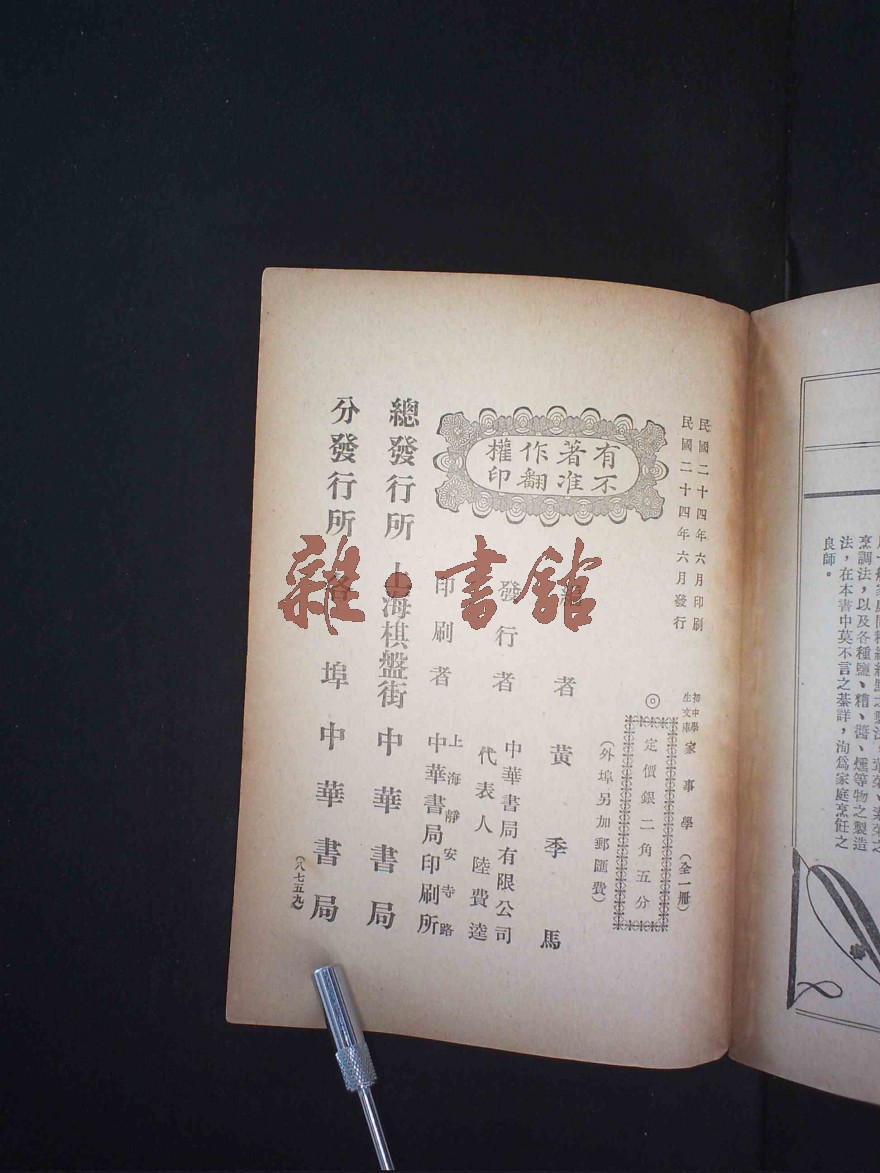 民國二十四年六月印刷
民國二十四年六月發行
初中學生文庫 家事學(全一冊)
◎定價銀二角五分
(外埠另加郵匯費)
有著作權
不准翻印
編者 黃季馬
發行者 中華書局有限公司
代表人 陸費逵
印刷者 上海靜安寺路
中華書局印刷所
總發行所 上海棋盤街 中華書局
分發行所 各埠 中華書局
(八七五九)
雜·書館
烹調法,以及各種鹽、糟、醬、燻等物之製造
法,在本書中莫不言之綦詳,洵爲家庭烹飪之
良師。